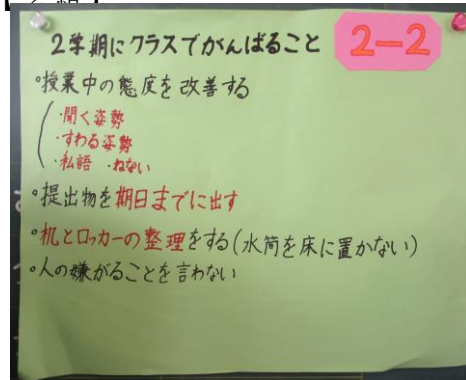 2学期にクラスでがんばること
2-2
•授業中の態度を改善する
・聞く姿勢
・すわる姿勢
・私語 ・ねない
•提出物を期日までに出す
•机とロッカーの整理をする(水筒を床に置かない)
•人の嫌がることを言わない